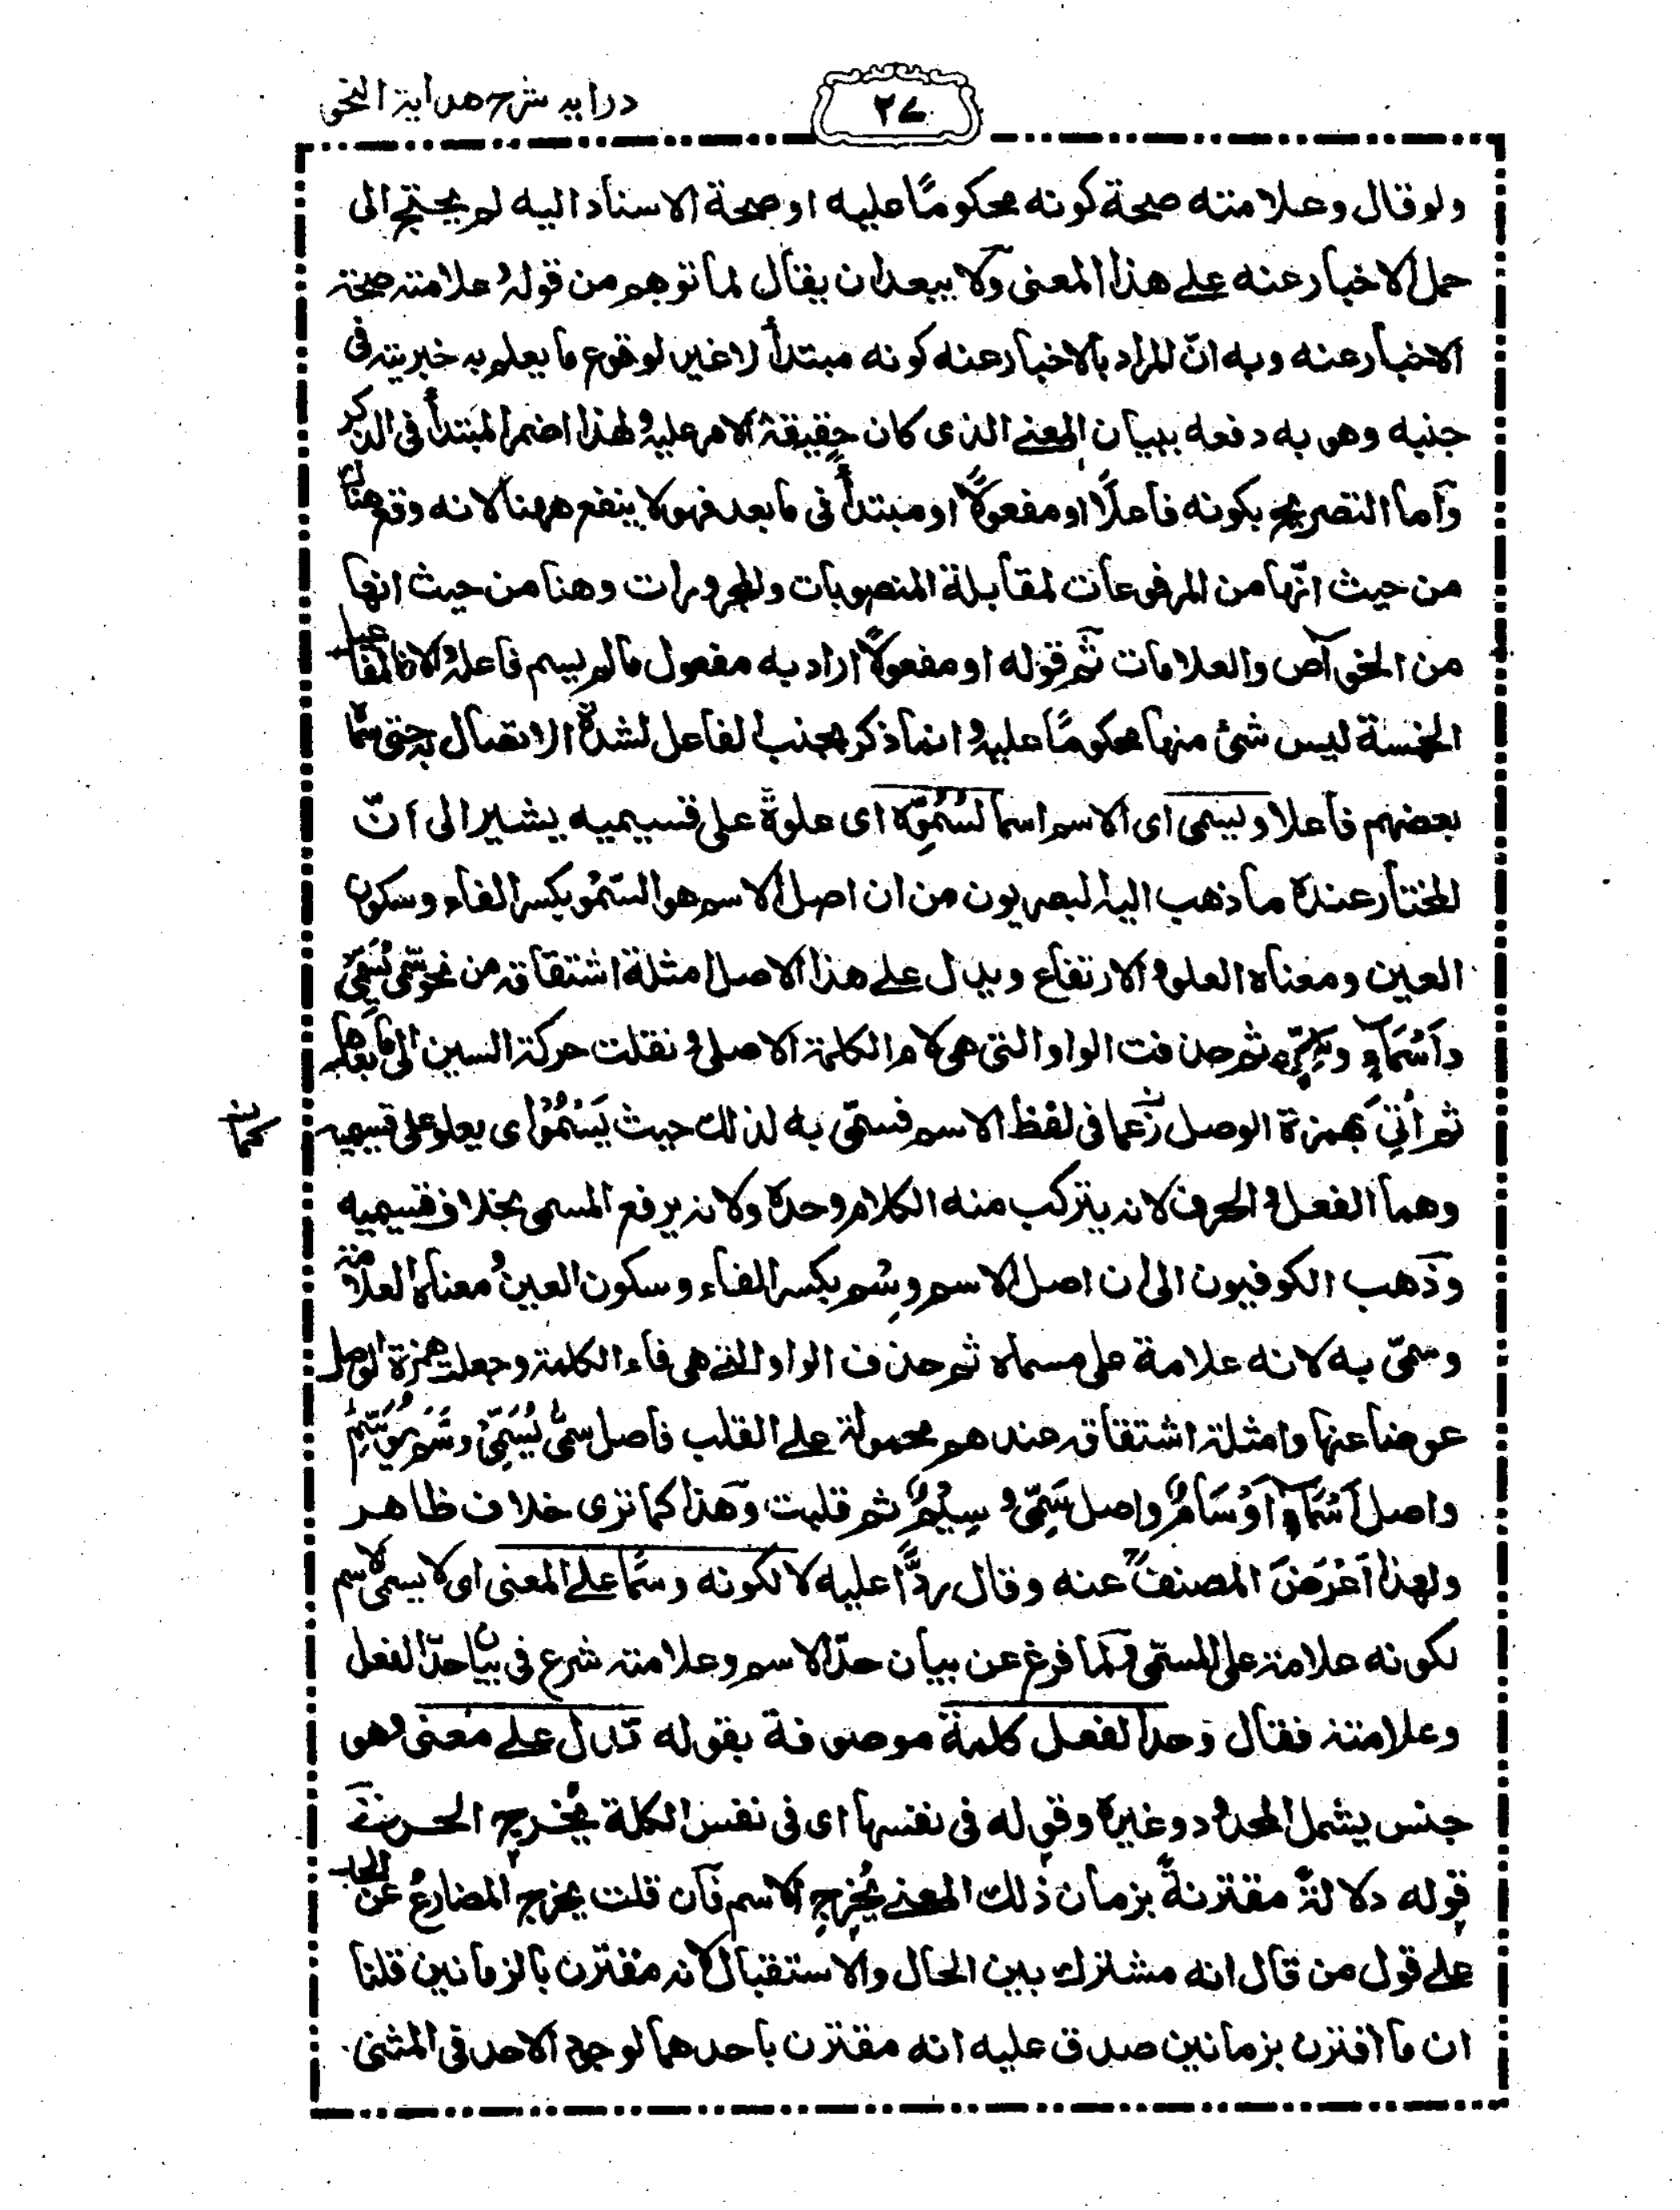 درايه شرح هداية النحو
٢٧
ولو قال وعلامته صحة كونه محكومًا عليه او صحة الاسناد اليه لم يحتج الى
حمل الاخبار عنه علے هذا المعنى ولا يبعد ان يقال لما توهم من قوله وعلامته صحة
الاخبار عنه وبه انّ المراد بالاخبار عنه كونه مبتدأ لا غير لوقوع ما يعلم به خبريته فى
جنبه وهو به دفعه ببيان المعنے الذى كان حقيقة الامر عليه ولهذا اضمر المبتدأ فى الذكر
وأما التصريح بكونه فاعلًا او مفعولًا او مبتدأً فى ما بعد فهو لا ينفع ههنا لانه وقع هناك
من حيث انّها من المرفوعات لمقابلة المنصوبات والمجرورات وهنا من حيث انها
من الخواص والعلامات ثم قوله او مفعولًا اراد به مفعول ما لم يسم فاعله والا فالمفاعيل
الخمسة ليس شئ منها محكومًا عليه وانما ذكر بجنب الفاعل لشدة الاتصال به حتى سما
بعضهم فاعلا ويسمى اى الاسم اسما لسُمُوِّه اى علوه على قسيميه يشير الى انّ
المختار عنده ما ذهب اليه البصريون من ان اصل الاسم هو السِّمْو بكسر الفاء وسكون
العين ومعناه العلو والارتفاع ويدل علے هذا الاصل امثلة اشتقاقه من نحو سمّى يُسَمِّىْ
واَسْمَاء ثم حذفت الواو التى هى لام الكلمة الاصلى ونقلت حركة السين الى ما بعدها
ثم أُتِىَ بهمزة الوصل فى لفظ الاسم فسمّى به لذلك حيث يَسْمُوْا اى يعلو على قسيميه
وهما الفعل والحرف لانه يتركب منه الكلام وحده ولانه يرفع المسمى بخلاف قسيميه
وذهب الكوفيون الى ان اصل الاسم وِسْم بكسر الفاء وسكون العين ومعناه العلامة
وسمّى به لانه علامة على مسماه ثم حذف الواو التے هى فاء الكلمة وجعلت همزة الوصل
عوضا عنها وامثلة اشتقاقه عندهم محمولة علے القلب فاصل سمّى يُسَمِّىْ وَسَّمَ يُوَسِّمُ
واصل اَسْمَاء اَوْسَامٌ واصل سُمَىٌّ وُسَيْمٌ ثم قلبت وهذا كما ترى خلاف ظاهر
ولهذا اَعْرَضَ المصنف عنه وقال ردًّا عليه لا لكونه وسمًا علے المعنى اى لا يسمى الاسم
لكونه علامة على المسمّى ولما فرغ عن بيان حدّ الاسم وعلامته شرع فى بيان حدّ الفعل
وعلامته فقال وحد الفعل كلمة موصوفة بقوله تدل علے معنى وهو
جنس يشمل المحدود وغيره وقوله فى نفسها اى فى نفس الكلمة يُخرج الحرف
قوله دلالةً مقترنةً بزمان ذلك المعنے يُخرج الاسم فان قلت يخرج المضارع عن الحد
علے قول من قال انه مشترك بين الحال والاستقبال لانه مقترن بالزمانين قلنا
ان ما اقترن بزمانين صدق عليه انه مقترن باحدهما لوجود الاحد فى المثنى